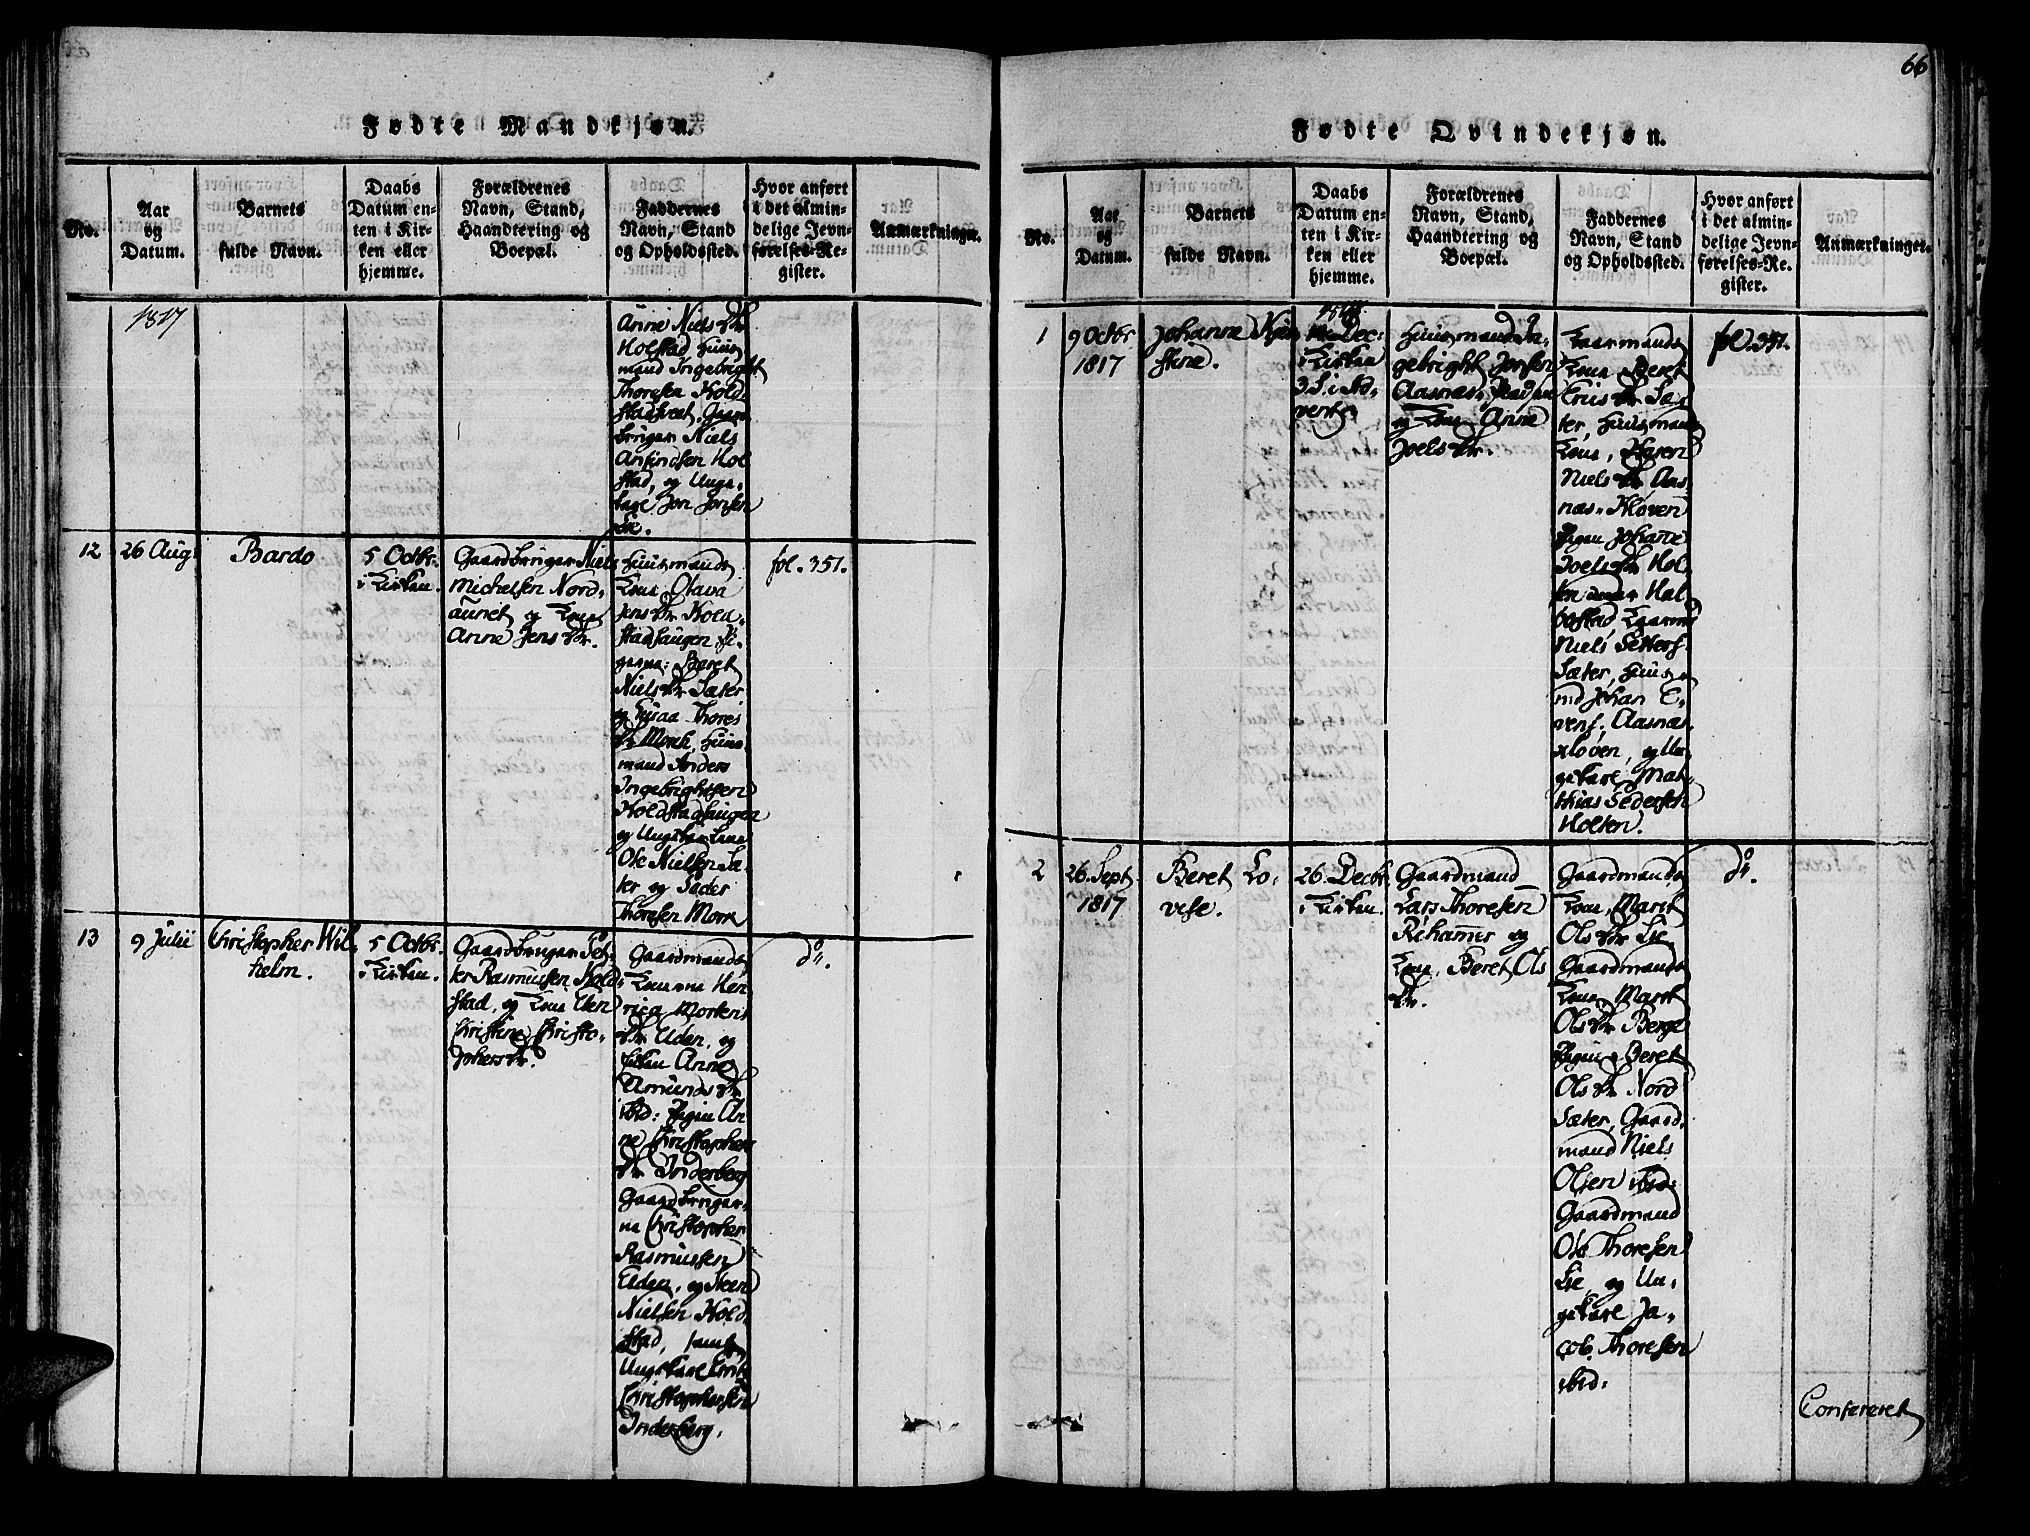 66
Fødte Mandkjøn.
No.
Aar
og
Datum.
Barnets
fulde Navn.
Daabs
Datum en-
ten i Kir-
ken eller
hjemme.
Forældrenes
Navn, Stand,
Haandtering og
Boepæl.
Faddernes
Navn, Stand
og Opholdssted.
Hvor anført
i det almin-
delige Jevn-
førelses-Re-
gister.
Anmærkninger.
1817
Anne Niels Dtr
Holstad Huus
mand Ingebright
Thoresen Hold
stadsvet, Gaard
bruger Niels
Anfindsen Hol
stad, og Unge
karl Jon Jonsen
Lie.
12
26 Aug:
Bardo
5 Octbr.
i Kirken.
Gaardbruger Niels
Michelsen Nord-
auret og Kone
Anne Jens Dtr.
Huusmands
Kone Olava
Jens Dtr Hold-
stadhaugen, Pi-
gerne: Beret
Niels Dtr Sæter
og Thores
Dtr Morck, Huus
mand Anders
Ingebrightsen
Holdstadhaugen
og Ungkarlene
Ole Nielsen Sæ-
ter og Peder
Thoresen Mork
fol. 351.
13
9 Julii
Christopher Wil-
helm.
5 Octbr.
i Kirken.
Gaardbruger Pet-
ter Rasmussen Hold-
stad, og Kone Elen
Christine Christo-
phers Dtr.
Gaardmands
Konerne Hen-
rica Mortens
Dtr Elden, og
Anne
Amunds Dtr
ibid: Pigen An-
ne Christophers
Dtr Inderberg
Gaardbruger-
ne Christopher
Rasmussen
Elden, og Steen
Nielsen Hold-
stad, samt
Ungekarl
Christophersen
Inderberg.
do.
Fødte Qvindekjøn.
No.
Aar
og
Datum.
Barnets
fulde Navn.
Daabs
Datum en-
ten i Kir-
ken eller
hjemme.
Forældrenes
Navn, Stand,
Haandtering og
Boepæl.
Faddernes
Navn, Stand
og Opholdssted.
Hvor anført
i det almin-
delige Jevn-
førelses-Re-
gister.
Anmærkninger.
1
9 Octbr
1817
Johanne Kjer-
stine.
Dec-
i Kirken
3 S. i Ad-
vent
Huusmand In-
gebright Jonsen
Aasnæs
og Kone Anne
Joels Dtr.
Gaardmands
Kone Beret
Eriis Dtr Sæ-
ter, Huusmands
Kone, Karen
Niels Dtr Aas-
næs-Kløven
Pigen Johanne
Joels Dtr Hol-
ten Hal-
bostad Gaardmd
Niels
Sæter, Huus-
md Johan E-
vens. Aasnæs-
kloven, og Un-
gekarl Mat-
thias Pedersen
Holten.
fol. 351.
2
26. Sept.
1817
Beret Lo-
vise.
26. Decbr.
i Kirken.
Gaardmand
Lars Thoresen
Rehammer og
Kone, Beret Ols
Dtr.
Gaardmands
Kone, Marit
Ols Dtr Lie
Gaardmands
Kone Marit
Ols Dtr Berge
Pigen Beret
Ols Dtr Nord
Sæter, Gaard-
mand Niels
Olsen ibid:
Gaardmand
Ole Thoresen
Lie og Un-
gekarl Ja-
cob. Thoresen
ibid:
do.
Confereret